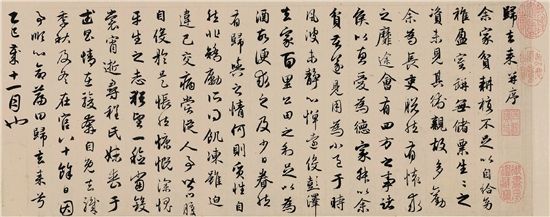 歸去來并序
余家貧耕植不足以自給幼
稚盈室缾無儲粟生生之
資未見其術親故多勸
余為長吏脫然有懷求
之靡途會有四方之事諸
侯以惠愛為德家叔以余
貧苦遂見用為小邑于時
風波未靜心憚遠役彭澤
去家百里公田之利足以為
酒故便求之及少日眷然
有歸與之情何則質性自
然非矯勵所得飢凍雖迫
違己交病嘗從人事皆口腹
自役於是悵然慷慨深愧
平生之志猶望一稔當斂
裳宵逝尋程氏妹喪于
武昌情在駿奔自免去職
秋及冬在官八十餘日因
事順心命篇曰歸去來兮
乙巳歲十一月也